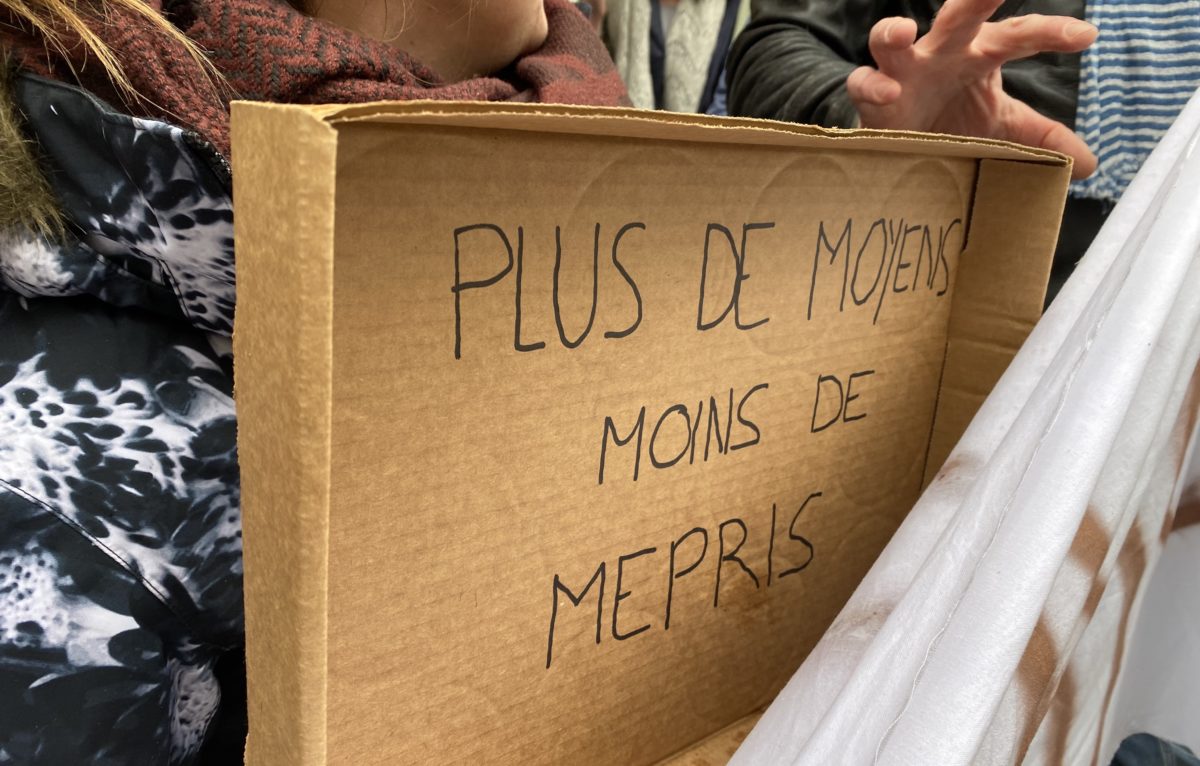 PLUS DE MOYENS
MOINS DE
MEPRIS